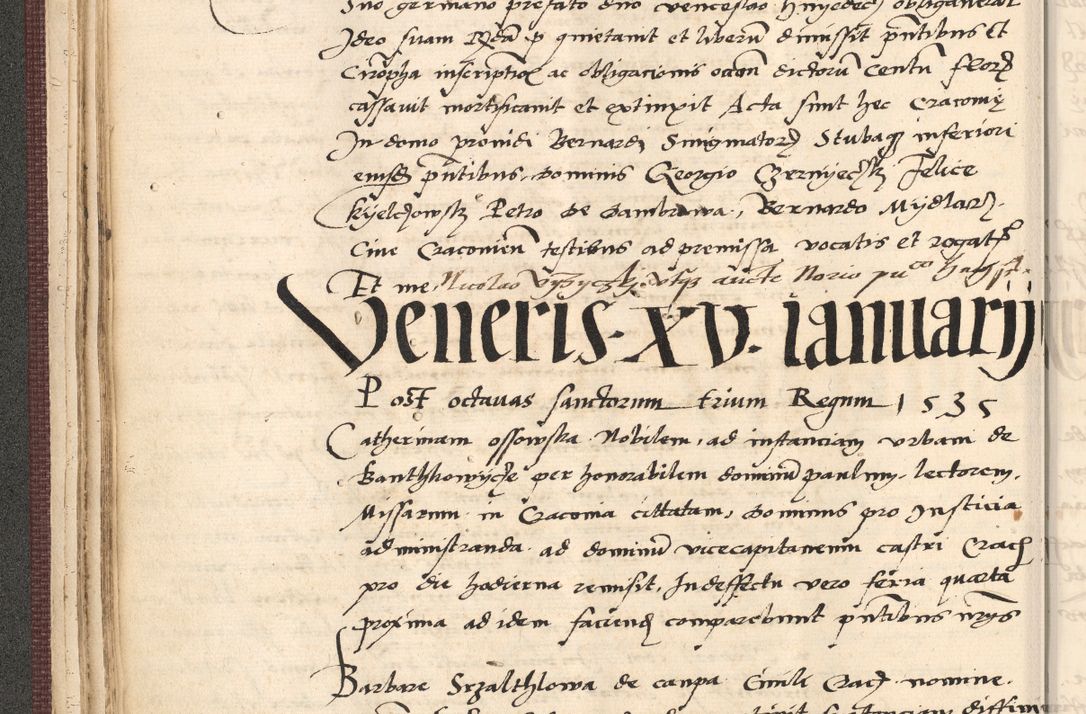 Ideo suam Rdam p quietavit et liberū dimissit pntibus Et
Cirographa inscriptiōe ac obligacionis dictorū Centū flor
cassavit mortificavit et extinxit Acta sunt hec Cracovię
In domo providi Bernardi Smigmatoris Stubaque inferiori
eiusdē pntibus dominis Georgio Czernyeczsky Felice
Kyelczowsky Petro de dambrowa, Bernardo Mydlarz
Cive Cracovien testibus ad premissa vocatis et rogat
Et me Nicolao
Veneris · xv · ianuarij
Post octavas sanctorum trium Regum 1535
Catherinam ossowska Nobilem, ad instanciam urbani de
per honorabilem dominū paulum, lectorem,
Missarum in Cracovia cittatam, dominus pro Iusticia
administranda ad dominū vicecapitaneum castri Crac
pro die hodierna remisit, In deffectu vero feria quarta
proxima ad idem faciend comparebunt pntibus nrys
Barbare Srzalthkowa de canpa Civili Crac nomine